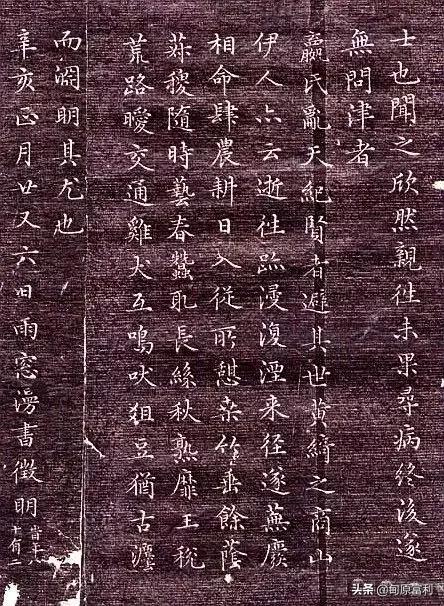 士也聞之欣然親往未果尋病終後遂
無問津者
嬴氏亂天紀賢者避其世黃綺之商山
伊人亦云逝往跡漫復湮来径遂蕪廢
相命肆農耕日入從所憩桒竹垂餘蔭
菽稷隨時藝春蠶取長絲秋熟靡王稅
荒路曖交通雞犬互鳴吠俎豆猶古灋
而淵明其尤也
辛亥正月廿又六日雨窓漫書徵明
時年八
十有二
头条 @甸原富利